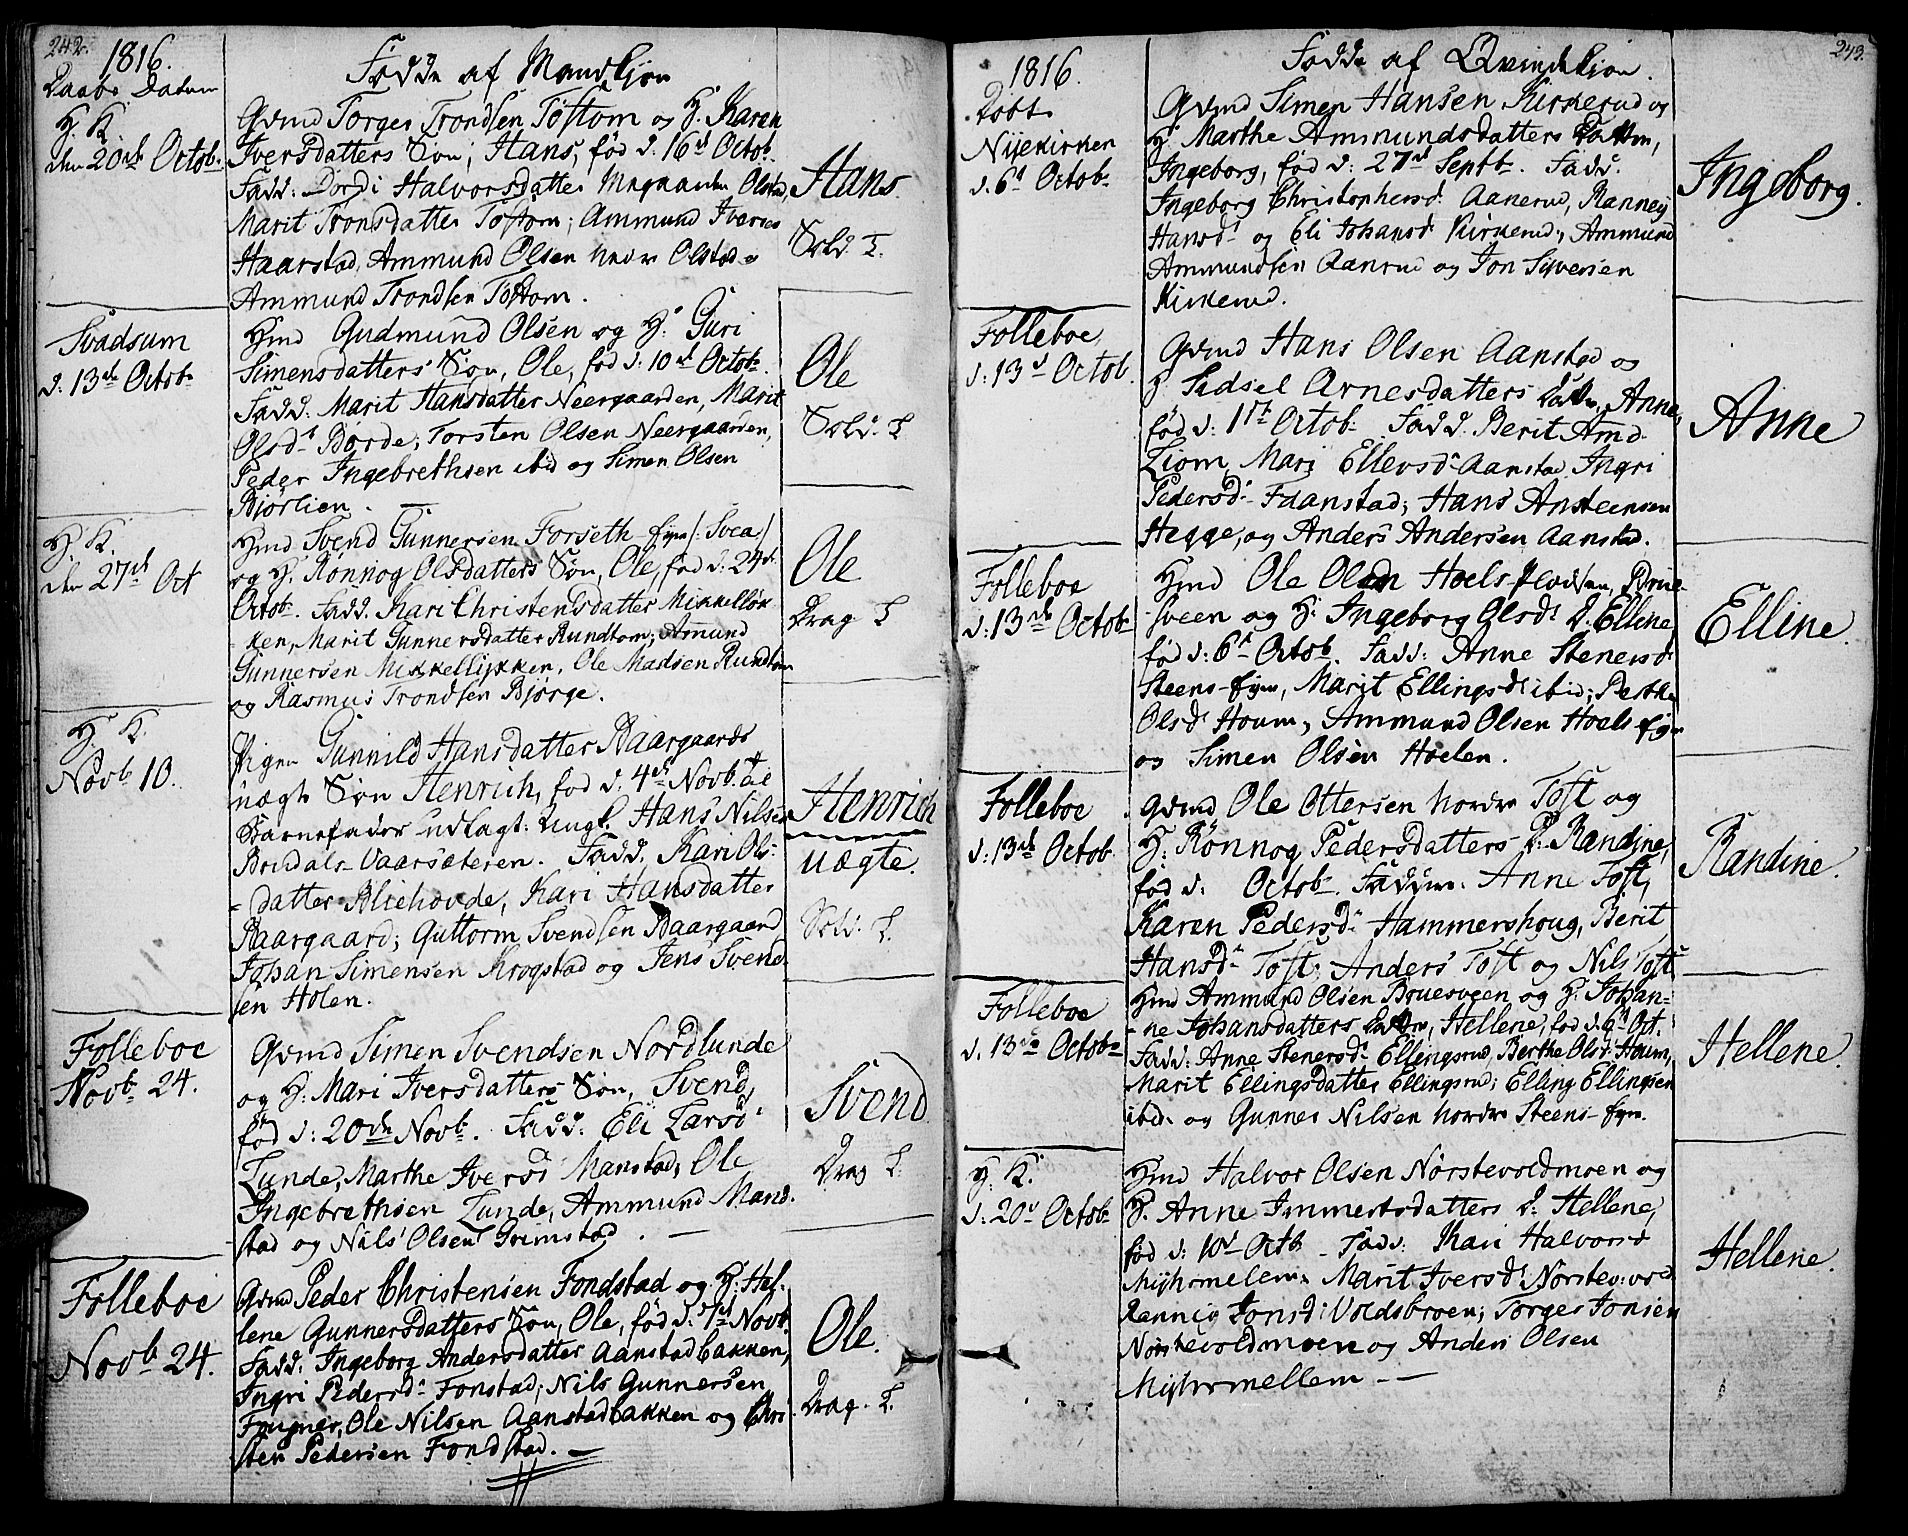 242.
1816.
Daabs Datum
Fødde af Mandkjøn
H. K.
den 20de Octobr
Gvmd Torger Trondsen Tostom og H. Karen
Iversdatters Søn, Hans, fød d. 16d Octob.
Fadd: Dordi Halvorsdatter Olstad,
Marit Tronsdatter Tostom; Ammund Iversen
Haarstad, Ammund Olsen nedre Olstad og
Ammund Trondsen Tostom.
Hans.
Sold. L.
Svadsum
d: 13de Octobr
Hmd Gudmund Olsen og H: Guri
Simensdatters Søn, Ole, fød d: 10d Octobr.
Fadd. Marit Hansdatter Neergaarden, Marit
Olsdr Børde; Torsten Olsen Neergaarden,
Peder Ingebrethsen ibid og Simen Olsen
Bjørlien.
Ole
Sold. L
H. K.
den 27d Oct
Hmd Svend Gunnersen Forseth-Ejen /: Svea/
og H. Rønnog Olsdatters Søn, Ole, fød d. 24d
Octobr. Fadd. Kari Christensdatter Mikkelløk-
-ken, Marit Gunnersdatter Rundtom; Amund
Gunnersen Mikkelløkken, Ole Madsen Rundtom
og Rasmus Trondsen Bjørge.
Ole
Drag L
H. K.
Novbr 10.
Pigen Gunnild Hansdatter Baargaards
uægte Søn Henrich, fød d. 4de Novbr. til
Barnefader udlagt: Ungk. Hans Nilsen
Brudals-Vaarsæteren. Fadd. Kari Ols-
-datter Bliehovde, Kari Hansdatter
Baargaard; Guttorm Svendsen Baargaard
Johan Simensen Krogstad og Jens Svend-
sen Holen.
Henrich
uægte.
Sold. L.
Folleboe
Novbr 24.
Gvmd Simen Svendsen Nordlunde
og H: Mari Iversdatters Søn, Svend,
fød d: 20de Novbr. Fadd: Eli Larsd
Lunde, Marthe Iversd Manstad; Ole
Ingebrethsen Lunde, Ammund Mand-
stad og Nils Olsen Grimstad.
Svend
Drag L.
Folleboe
Novbr 24.
Gvmd Peder Christensen Fondstad og H: Hel-
lene Gunnersdatters Søn, Ole, fød d. 7d Novb.
Fadd: Ingeborg Andersdatter Aanstadbakken,
Ingri Pedersdr Fonstad; Nils Gunnersen
Fougner, Ole Nilsen Aanstadbakken og Chri-
sten Pedersen Fondstad.
Ole.
Drag. L.
243.
1816.
Døbt
Fødde af Qvindekjøn.
Nijekirken
d. 6d Octobr
Gvmd Simen Hansen Kirkerud og
H. Marthe Ammundsdatters Datter,
Ingeborg, fød d: 27d Septbr. Fadd:
Ingeborg Christophersd Aanerud, Ranney
Hansdr og Eli Johansd Kirkerud, Ammund
Ammundsen Aanrud og Jon Siversen
Kirkerud.
Ingeborg.
Folleboe
d: 13d Octob.
Gvmd Hans Olsen Aanstad og
H. Sidsel Arnesdatters Datter, Anne,
fød d: 1ste Octobr Fadd. Berit Amd-
Liom, Mari Ellevsdr Aanstad Ingri
Pedersdr Faanstad; Hans Ansteensen
Hegge, og Anders Andersen Aanstad.
Anne
Folleboe
d: 13de Octobr
Hmd Ole Olsen Hoels Pladsen, Brue-
-sveen og H: Ingeborg Olsdr D. Elline
fød d: 6d Octobr. Fadd: Anne Stenersdr
Steens-Ejen, Marit Ellingsdr ibid; Berthe
Olsdr Houm, Ammund Olsen Hoels Ejen
og Simen Olsen Hoelen.
Elline.
Folleboe
d: 13de Octob
Gvmd Ole Ottersen nordre Toft og
H. Rønnog Pedersdatters D: Randine,
fød d: Octobr. Fadderne: Anne Toft,
Karen Pedersdr Hammershoug, Berit
Hansdr Toft; Anders Toft og Nils Toft
Randine.
Folleboe
d. 13de Octobr
Hmd Ammund Olsen Bruesveen og H: Johan-
-ne Johansdatters Datter, Hellene, fød d. 6d Oct.
Fadd: Anne Stenersdr Ellingsrud, Berthe Olsd Houm,
Marit Ellingsdatter Ellingsrud; Elling Ellingsen
ibid. og Gunner Nilsen nordre Steens-Ejen.
Hellene.
H. K.
d: 20d Octobr
Hmd Halvor Olsen Nørstevoldmoen og
H. Anne Immertsdatters D: Hellene,
fød d: 10d Octb. Fadd: Mari Halvorsd
Mijhrmelem, Marit Iversdr Nørstevold
Rannig Jonsd: Voldsbroen; Torger Jonsen
Nørstevoldmoen og Anders Olsen
Mijhrmellem.
Hellene.